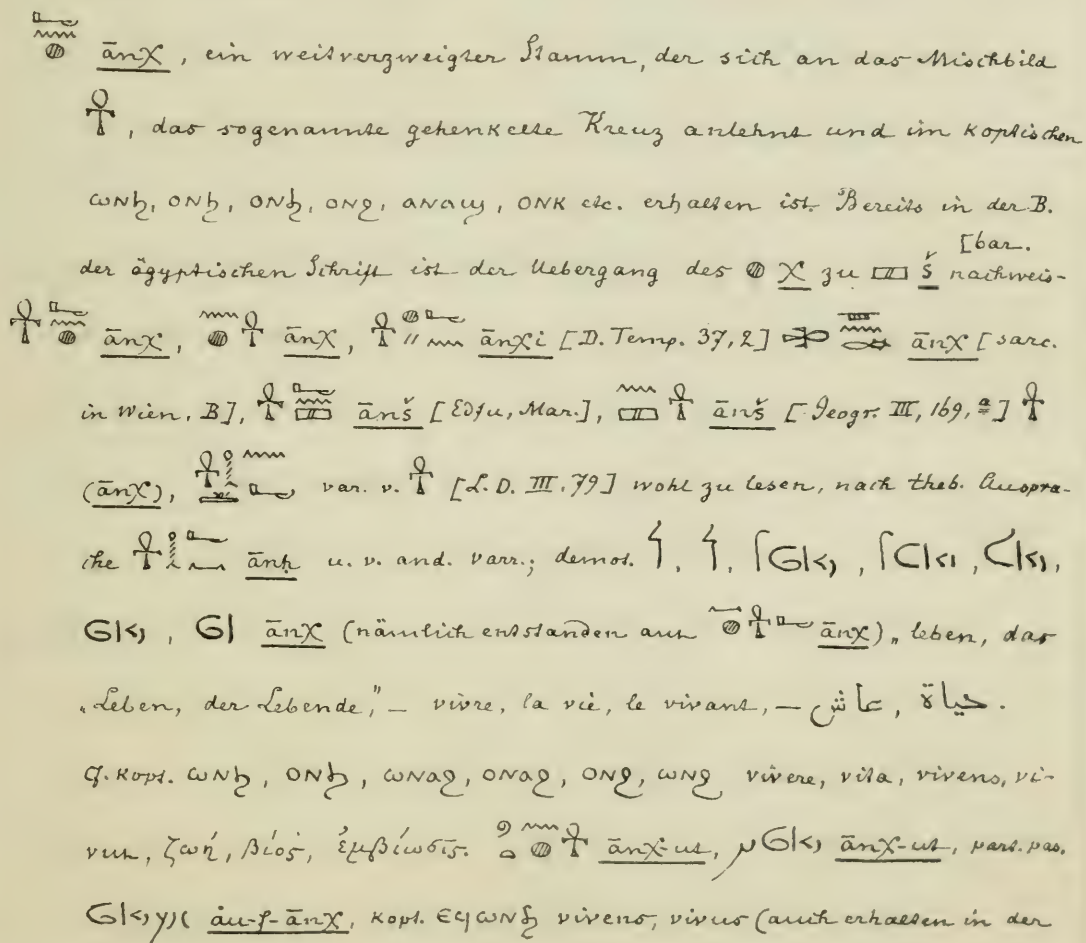 ānχ, ein weitverzweigter Stamm, der sich an das Mischbild
𓋹, das sogenannte gehenkelte Kreuz anlehnt und im koptischen
ⲱⲛϧ, ⲟⲛϧ, ⲟⲛϧ, ⲟⲛϩ, ⲁⲛⲁϣ, ⲟⲛⲕ etc. erhalten ist. Bereits in der B.
[bar.
der ägyptischen Schrift ist der Uebergang des 𓐍 χ zu 𓈙 š nachweis-
𓋹 ānχ, 𓈖𓐍𓋹 ānχ, 𓋹 ānχi [D. Temp. 37,2] ānχ [sarc.
in Wien, B], 𓋹 ānš [Edfu, Mar.], 𓈖𓈙𓋹 ānš [Geogr. III, 169, a] 𓋹
(ānχ), var. v. 𓋹 [L. D. III. 79] wohl zu lesen, nach theb. Ausspra-
che ānḥ u. v. and. varr.; demot.
ānχ (nämlich entstanden aus ānχ) „leben, das
„Leben, der Lebende," – vivre, la vie, le vivant, – عاش, حياة.
Cf. kopt. ⲱⲛϧ, ⲟⲛϧ, ⲱⲛⲁϩ, ⲟⲛⲁϩ, ⲟⲛϩ, ⲱⲛϩ vivere, vita, vivens, vi-
vus, ζωή, βίος, ἐμβίωσις. ānχ-ut, ānχ-ut, part. pas.
āu-f-ānχ, kopt. ⲉϥⲱⲛϧ vivens, vivus (auch erhalten in der